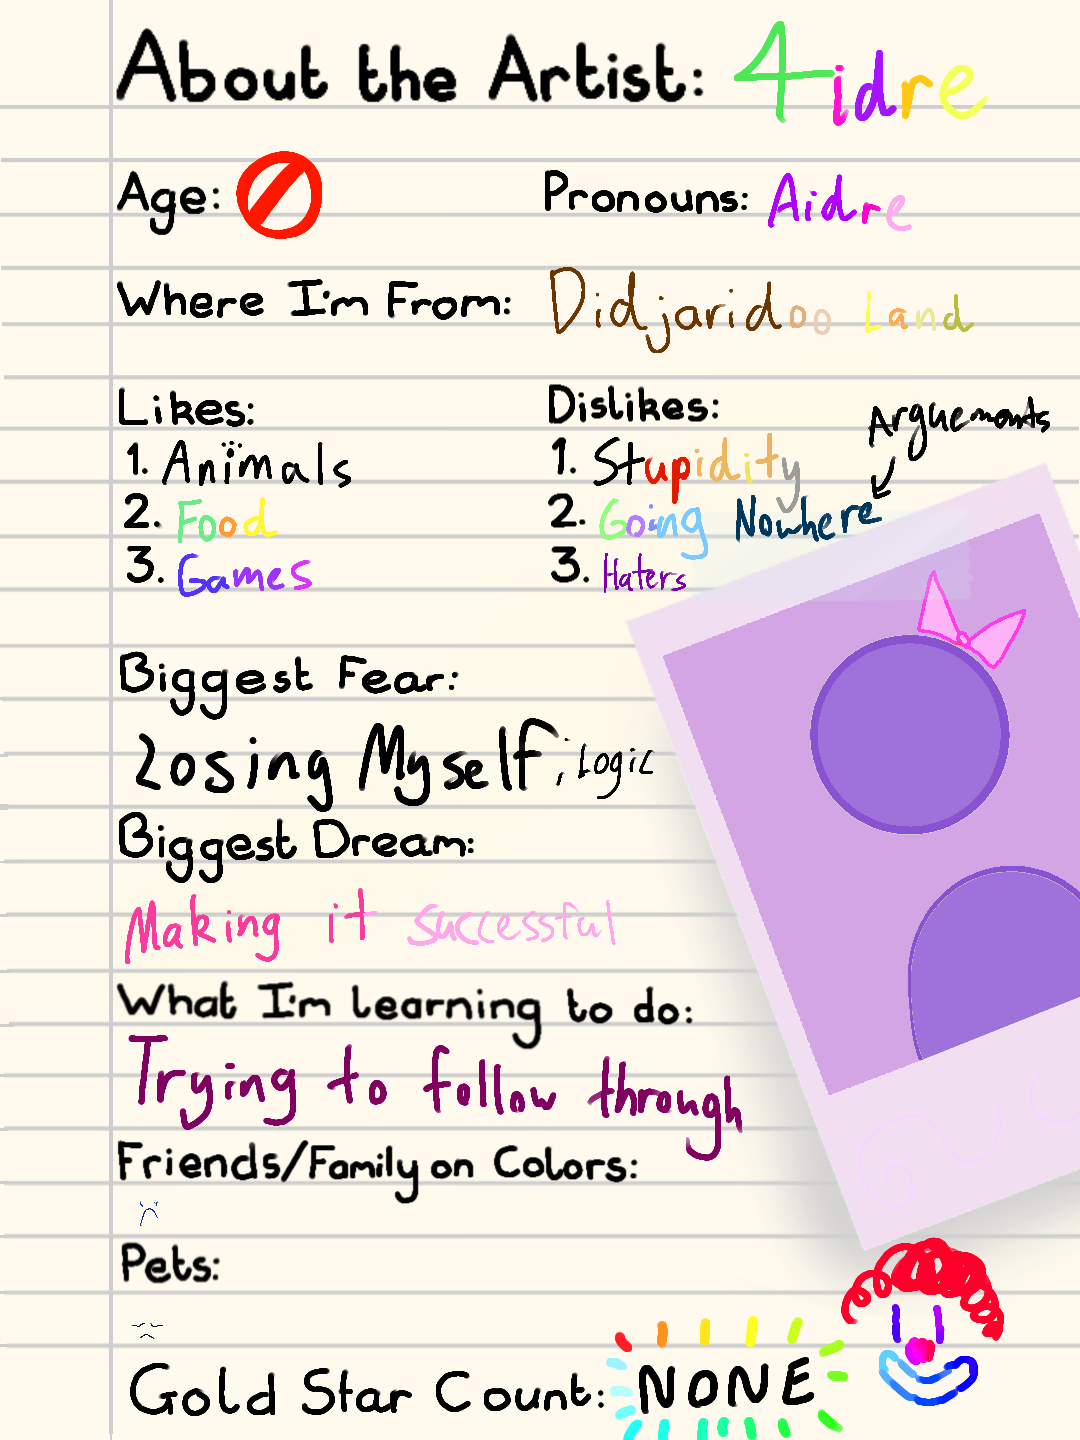 About the Artist: 4idre
Age:
Pronouns: Aidre
Where I'm From: Didjaridoo Land
Likes:
1. Animals
2. Food
3. Games
Dislikes:
1. Stupidity
2. Going Nowhere
Arguements
3. Haters
Biggest Fear:
Losing Myself, Logic
Biggest Dream:
Making it successful
What I'm learning to do:
Trying to follow through
Friends/Family on Colors:
Pets:
Gold Star Count: NONE